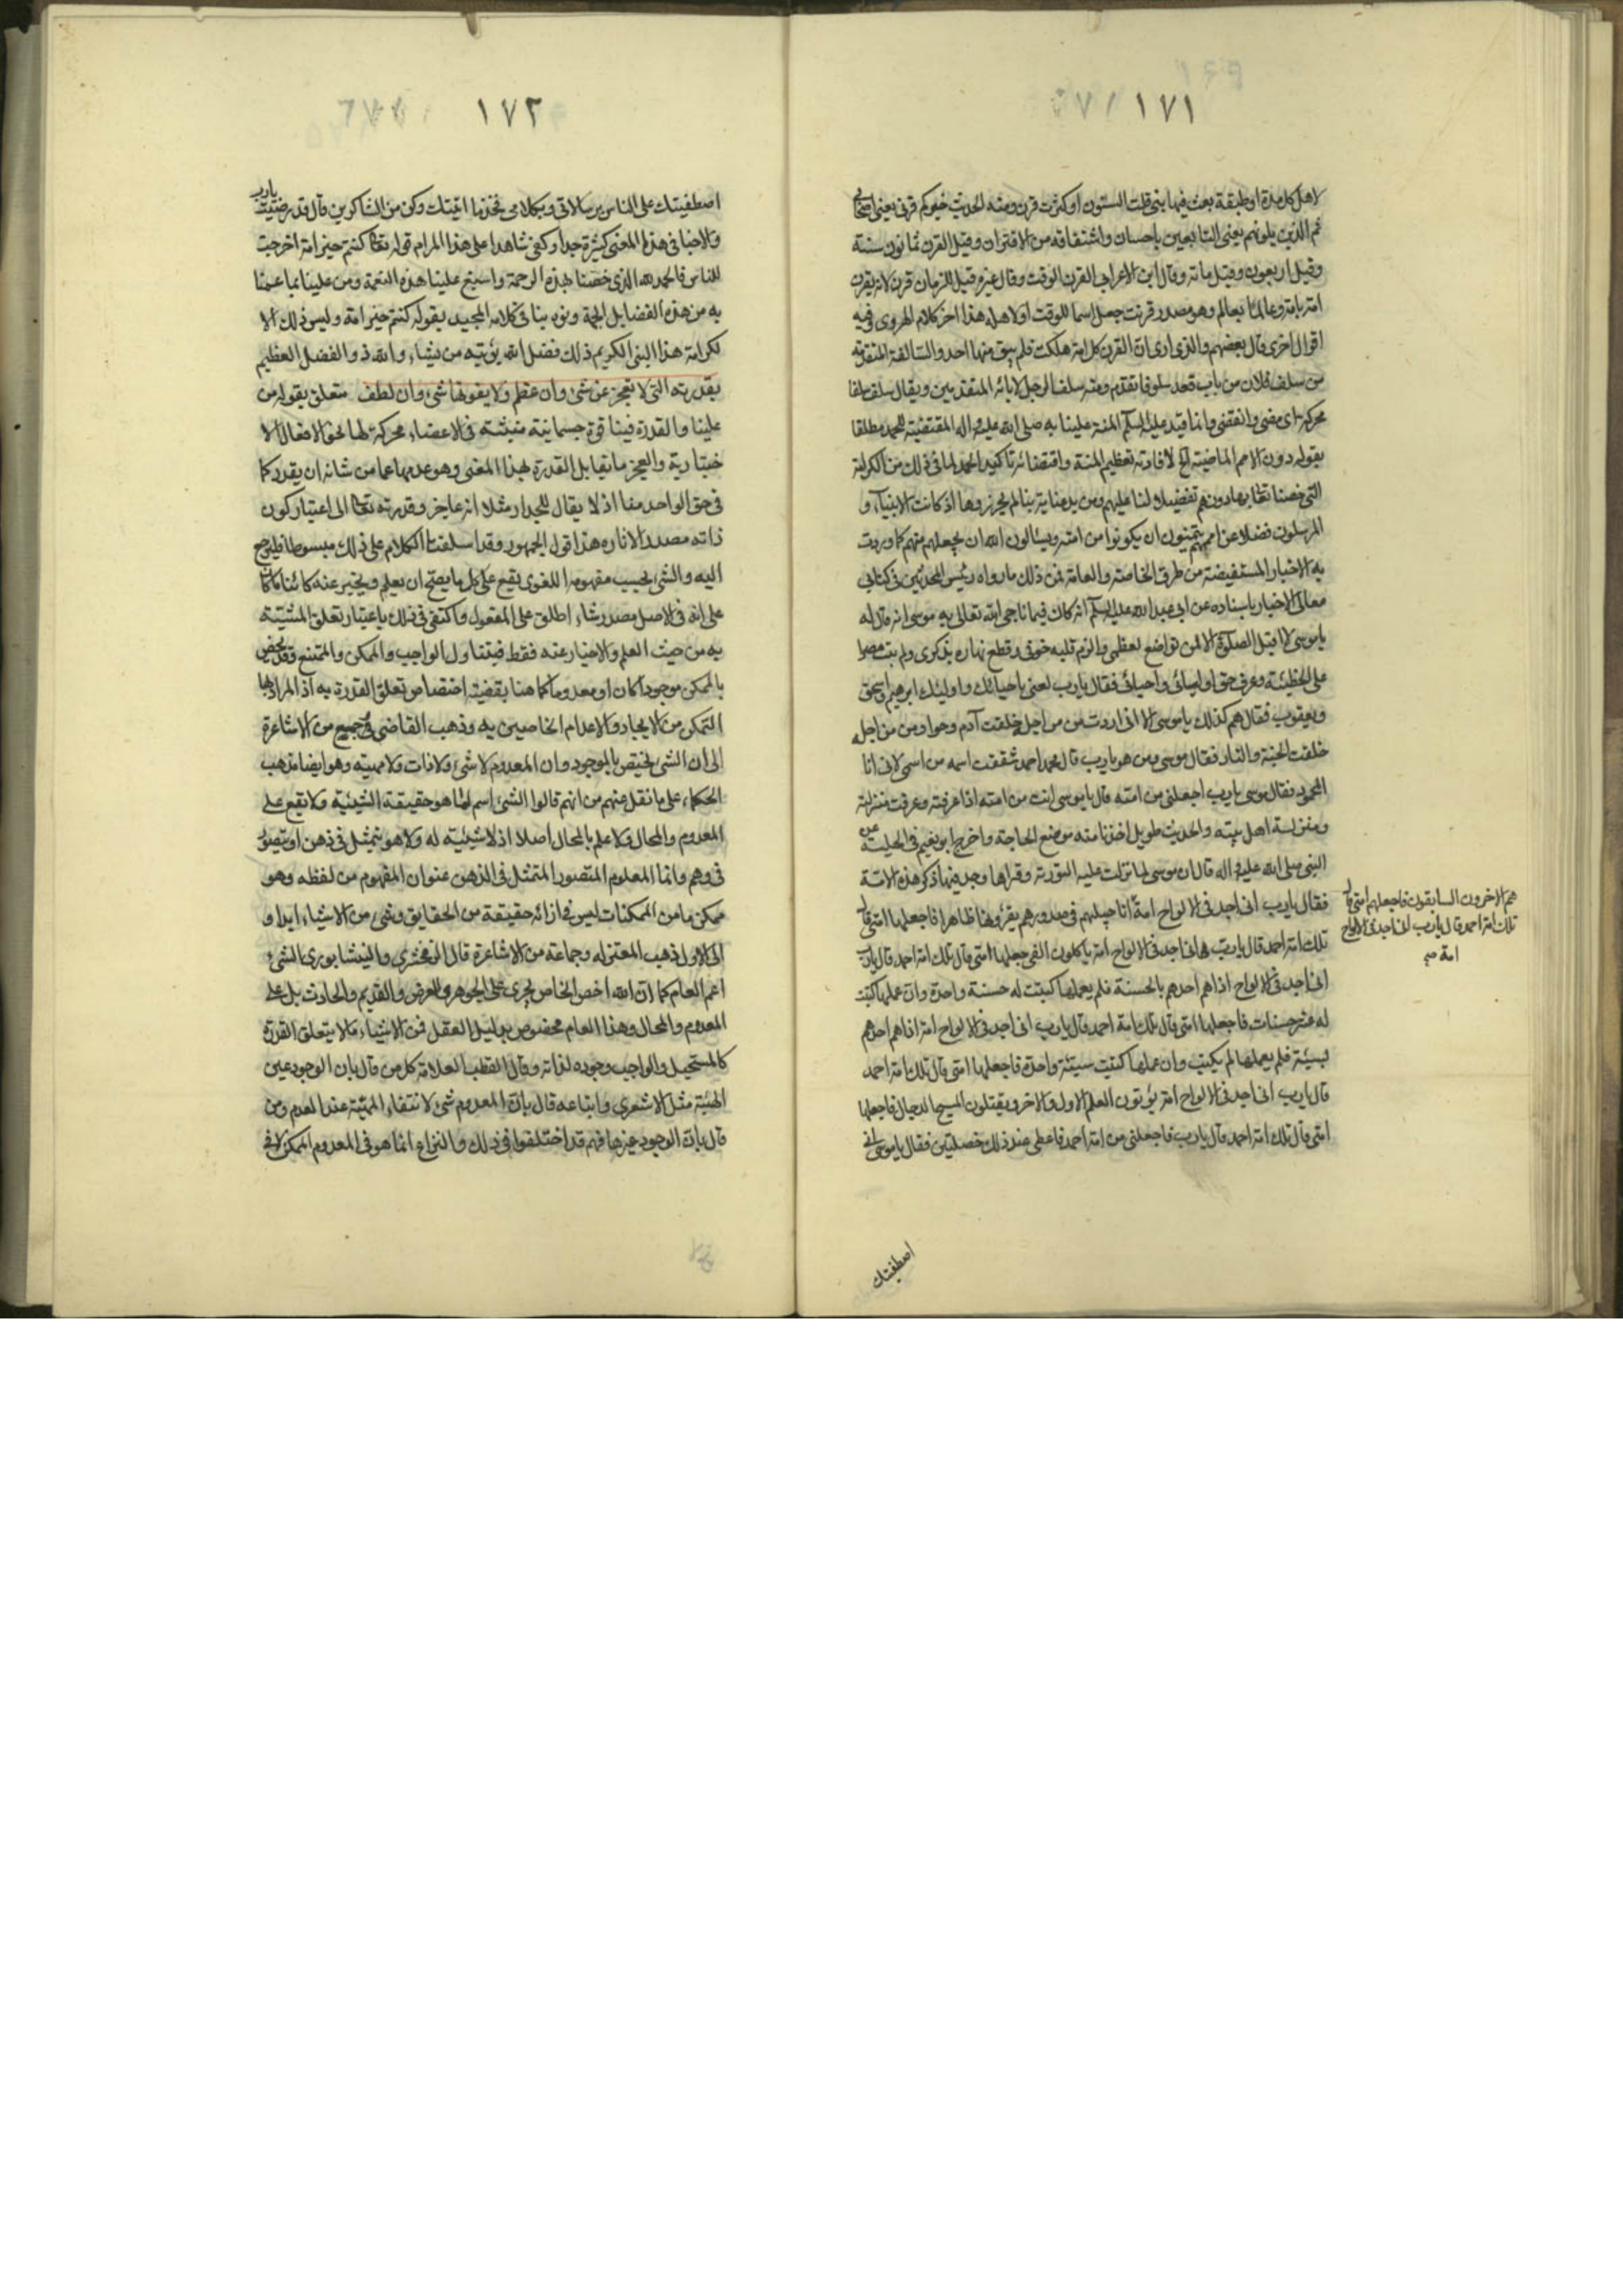 ١٧١
لاهل كل مدة او طبقة بعث فيها نبي قلت السنون او كثرت قرن ومنه الحديث خيركم قرني يعني اصحابي
ثم الذين يلونهم يعني التابعين باحسان واشتقاقه من الاقتران وقيل القرن ثمانون سنة
وقيل اربعون وقيل مائة وقال ابن الاعرابي القرن الوقت وقال غيره قيل للزمان قرن لانه يقرن
امة بامة وعالما بعالم وهو مصدر قرنت جعل اسما للوقت او لاهله هذا اخر كلام الهروي وفيه
اقوال اخرى قال بعضهم والذي ارى ان القرن كل امة هلكت فلم يبق منها احد والسالفة المتقدمة
من سلف فلان من باب قعد سلوفا تقدم ومنه سلف الرجل لابائه المتقدمين ويقال سلف سلفا
محركة اى مضى وانقضى وانما قيد عليه السلم المنة علينا به صلى الله عليه واله المقتضية للحمد مطلقا
بقوله دون الامم الماضية الخ لافادته تعظيم المنة واقتضائه تاكيد الحمد لما في ذلك من الكرامة
التي خصنا تعالى بها دونهم تفضيلا لنا عليهم ومن يد عناية بنا لم يحرزوها اذ كانت الانبياء و
المرسلون فضلا عن اممهم يتمنون ان يكونوا من امته ويسئالون الله ان يجعلهم منهم كما وردت
به الاخبار المستفيضة من طرق الخاصة والعامة فمن ذلك ما رواه رئيس المحدثين في كتابي
معاني الاخبار باسناده عن ابي عبد الله عليه السلم انه كان فيما ناجى الله تعالى به موسى انه قال له
يا موسى لا اقبل الصلوة الا لمن تواضع لعظمتي والزم قلبه خوفي وقطع نهاره بذكرى ولم يبت مصرا
على الخطيئة وعرف حق اوليائي واحبائي فقال يا رب تعني باحبائك واوليائك ابرهيم واسحق
ويعقوب فقال هم كذلك يا موسى الا اني اردت من من اجله خلقت آدم وحوا ومن من اجله
خلقت الجنة والنار فقال موسى ومن هو يا رب قال محمد احمد شققت اسمه من اسمي لاني انا
المحمود فقال موسى يا رب اجعلني من امته قال يا موسى انت من امته اذا عرفته وعرفت منزلته
ومنزلة اهل بيته والحديث طويل اخذنا منه موضع الحاجة واخرج ابو نعيم في الحلية عن
النبي صلى الله عليه واله قال ان موسى لما نزلت عليه التورية وقراها وجد فيها ذكر هذه الامة
فقال يا رب اني اجد في الالواح امة اناجيلهم في صدورهم يقرؤنها ظاهرا فاجعلها امتي قال
تلك امة احمد قال يا رب اني اجد في الالواح امة ياكلون الفئ فاجعلها امتي قال تلك امة احمد قال يا رب
اني اجد في الالواح امة اذا هم احدهم بالحسنة فلم يعملها كتبت له حسنة واحدة وان عملها كتبت
له عشر حسنات فاجعلها امتي قال تلك امة احمد قال يا رب اني اجد في الالواح امة اذا هم احدهم
بسيئة فلم يعملها لم يكتب وان عملها كتبت سيئة واحدة فاجعلها امتي قال تلك امة احمد
قال يا رب اني اجد في الالواح امة يؤتون العلم الاول والاخر ويقتلون المسيح الدجال فاجعلها
امتي قال تلك امة احمد قال يا رب فاجعلني من امة احمد فاعطى عند ذلك خصلتين فقال يا موسى اني
هم الاخرون السابقون فاجعلهم امتي قال
تلك امة احمد قال يا رب اني اجد في الالواح
امة صح
اصطفيتك
١٧٢
اصطفيتك على الناس برسالاتي وبكلامي فخذ ما اتيتك وكن من الشاكرين قال قد رضيت يا رب
والاخبار في هذا المعنى كثيرة جدا وكفى شاهدا على هذا المرام قوله تعالى كنتم خير امة اخرجت
للناس فالحمد لله الذي خصنا بهذه الرحمة واسبغ علينا هذه النعمة ومن علينا بما عمنا
به من هذه الفضايل الجمة ونوه بنا في كلامه المجيد بقوله كنتم خير امة وليس ذلك الا
لكرامة هذا النبي الكريم ذلك فضل الله يؤتيه من يشاء والله ذو الفضل العظيم
بقدرته التي لا تعجز عن شئ وان عظم ولا يفوتها شئ وان لطف متعلق بقوله من
علينا والقدرة فينا قوة جسمانية منبثة في الاعضاء محركة لها نحو الافعال الا
ختيارية والعجز ما يقابل القدرة بهذا المعنى وهو عدمها عما من شانه ان يقدر كما
في حق الواحد منا اذ لا يقال للجدار مثلا انه عاجز وقدرته تعالى الى اعتبار كون
ذاته مصدر الاثار هذا قول الجمهور وقد اسلفنا الكلام على ذلك مبسوطا فليرجع
اليه والشئ بحسب مفهومه اللغوى يقع على كل ما يصح ان يعلم ويخبر عنه كائنا ما كان
على انه في الاصل مصدر شاء اطلق على المفعول واكتفى في ذلك باعتبار تعلق المشيئة
به من حيث العلم والاخبار عنه فقط فيتناول الواجب والممكن والممتنع وقد يخص
بالممكن موجودا كان او معدوما كما هنا بقضية اختصاص تعلق القدرة به اذ المراد بها
التمكن من الايجاد والاعدام الخاصين به وذهب القاضي وجميع من الاشاعرة
الى ان الشئ يختص بالموجود وان المعدوم لا شئ ولا ذات ولا مهية وهو ايضا مذهب
الحكماء على ما نقل عنهم من انهم قالوا الشئ اسم لما هو حقيقة الشيئية ولا يقع على
المعدوم والمحال ولا علم بالمحال اصلا اذ لا شيئية له ولا هو يتمثل في ذهن او يتصور
في وهم وانما المعلوم المتصور المتمثل في الذهن عنوان المفهوم من لفظه وهو
ممكن ما من الممكنات ليس في ازائه حقيقة من الحقايق وشئ من الاشياء ابدا و
الى الاول ذهب المعتزله وجماعة من الاشاعرة قال الزمخشري والنيشابوري الشئ
اعم العام كما ان الله اخص الخاص يجرى على الجوهر والعرض والقديم والحادث بل على
المعدوم والمحال وهذا العام مخصوص بدليل العقل فمن الاشياء ما لا يتعلق القدرة
كالمستحيل والواجب وجوده لذاته وقال القطب العلامة كل من قال بان الوجود عين
المهية مثل الاشعرى واتباعه قال بان المعدوم ليس شئ لانتفاء المهية عند العدم ومن
قال بان الوجود غيرها فهم قد اختلفوا في ذلك والنزاع انما هو في المعدوم الممكن لا في